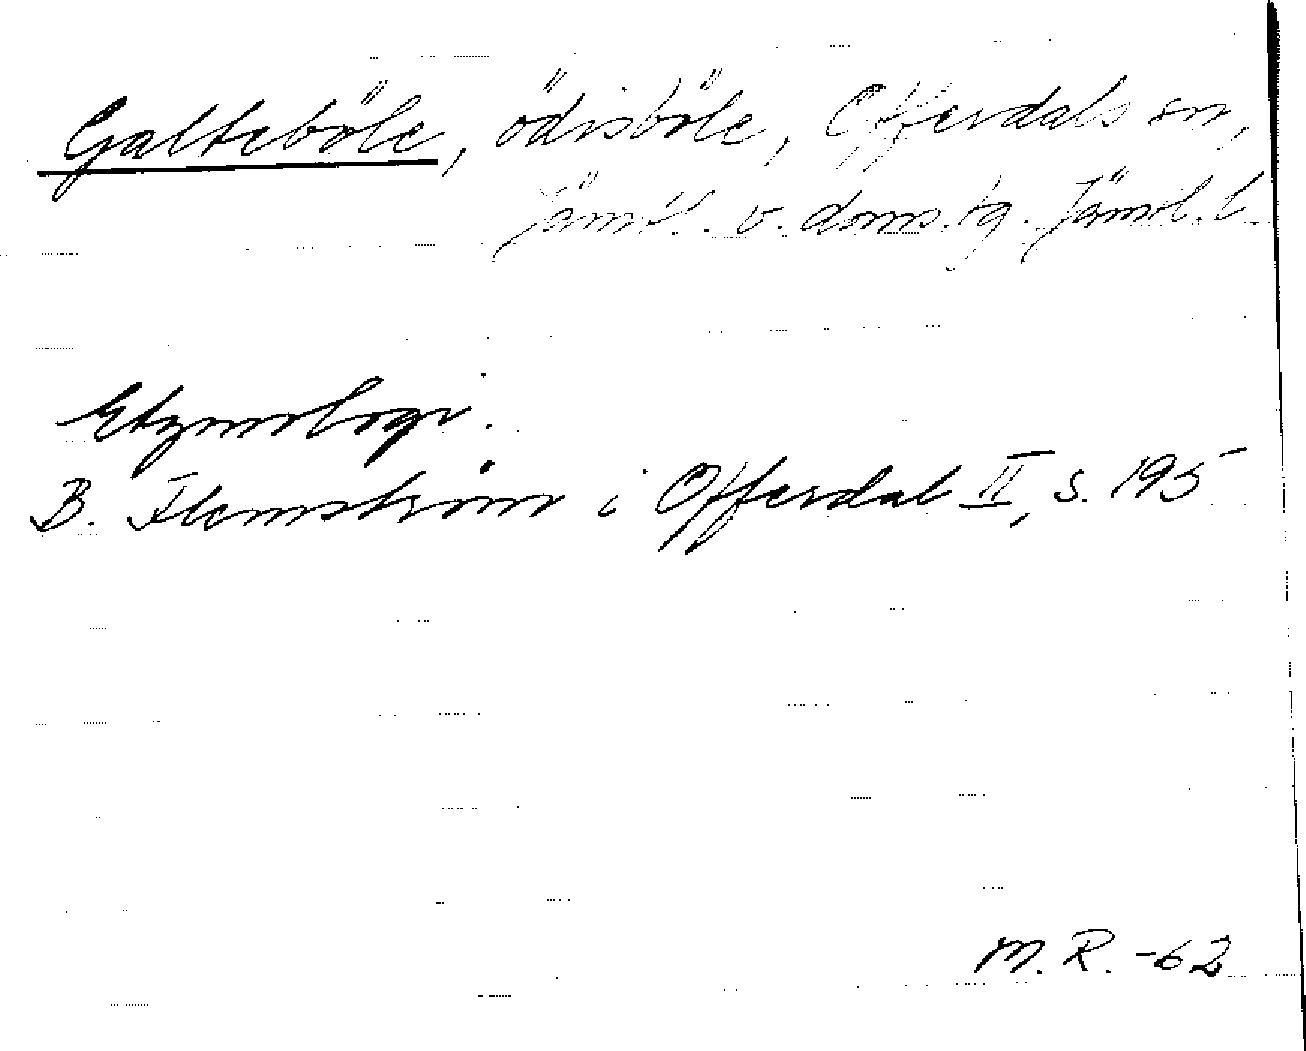 Galteböle, ödisböle, Offerdals sn,
Jämtl. v. doms.tg. Jämtl. l.
Etymologi.
B. Flemström i Offerdal II, s. 195
M. R. -62